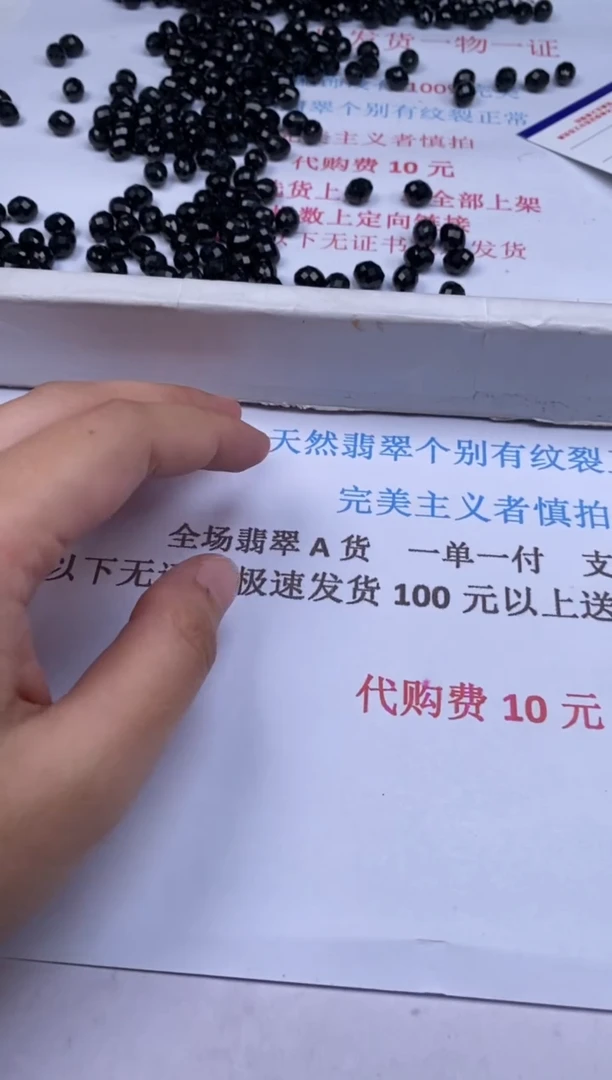 发货一物一证
100%完美
翡翠个别有纹裂正常
完美主义者慎拍
代购费 10 元
货上 全部上架
数上定向链接
以下无证书 发货
天然翡翠个别有纹裂
完美主义者慎拍
全场翡翠 A 货 一单一付 支
以下无 极速发货 100 元以上送
代购费 10 元